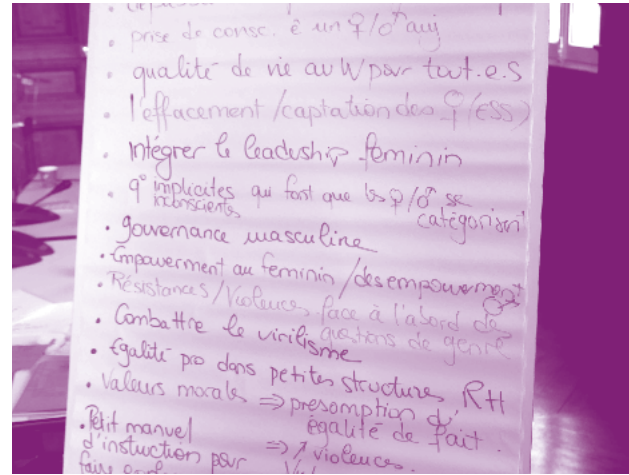 • prise de consc. ê un ♀/♂ auj
• qualité de vie au W pour tout.e.s
• l'effacement/captation des ♀ (ESS)
• intégrer le leadership féminin
• q° implicites qui font que les ♀/♂ se
inconscients catégorisent
• gouvernance masculine
• Empowerment au féminin / desempowerment ♂
• Résistances/Violences face à l'abord de
questions de genre
• Combattre le virilisme
• Egalité pro dans petites structures RH
• Valeurs morales ⇒ presomption d'
égalité de fait.
• Petit manuel ⇒ ↗ violences.
d'instuction pour
faire